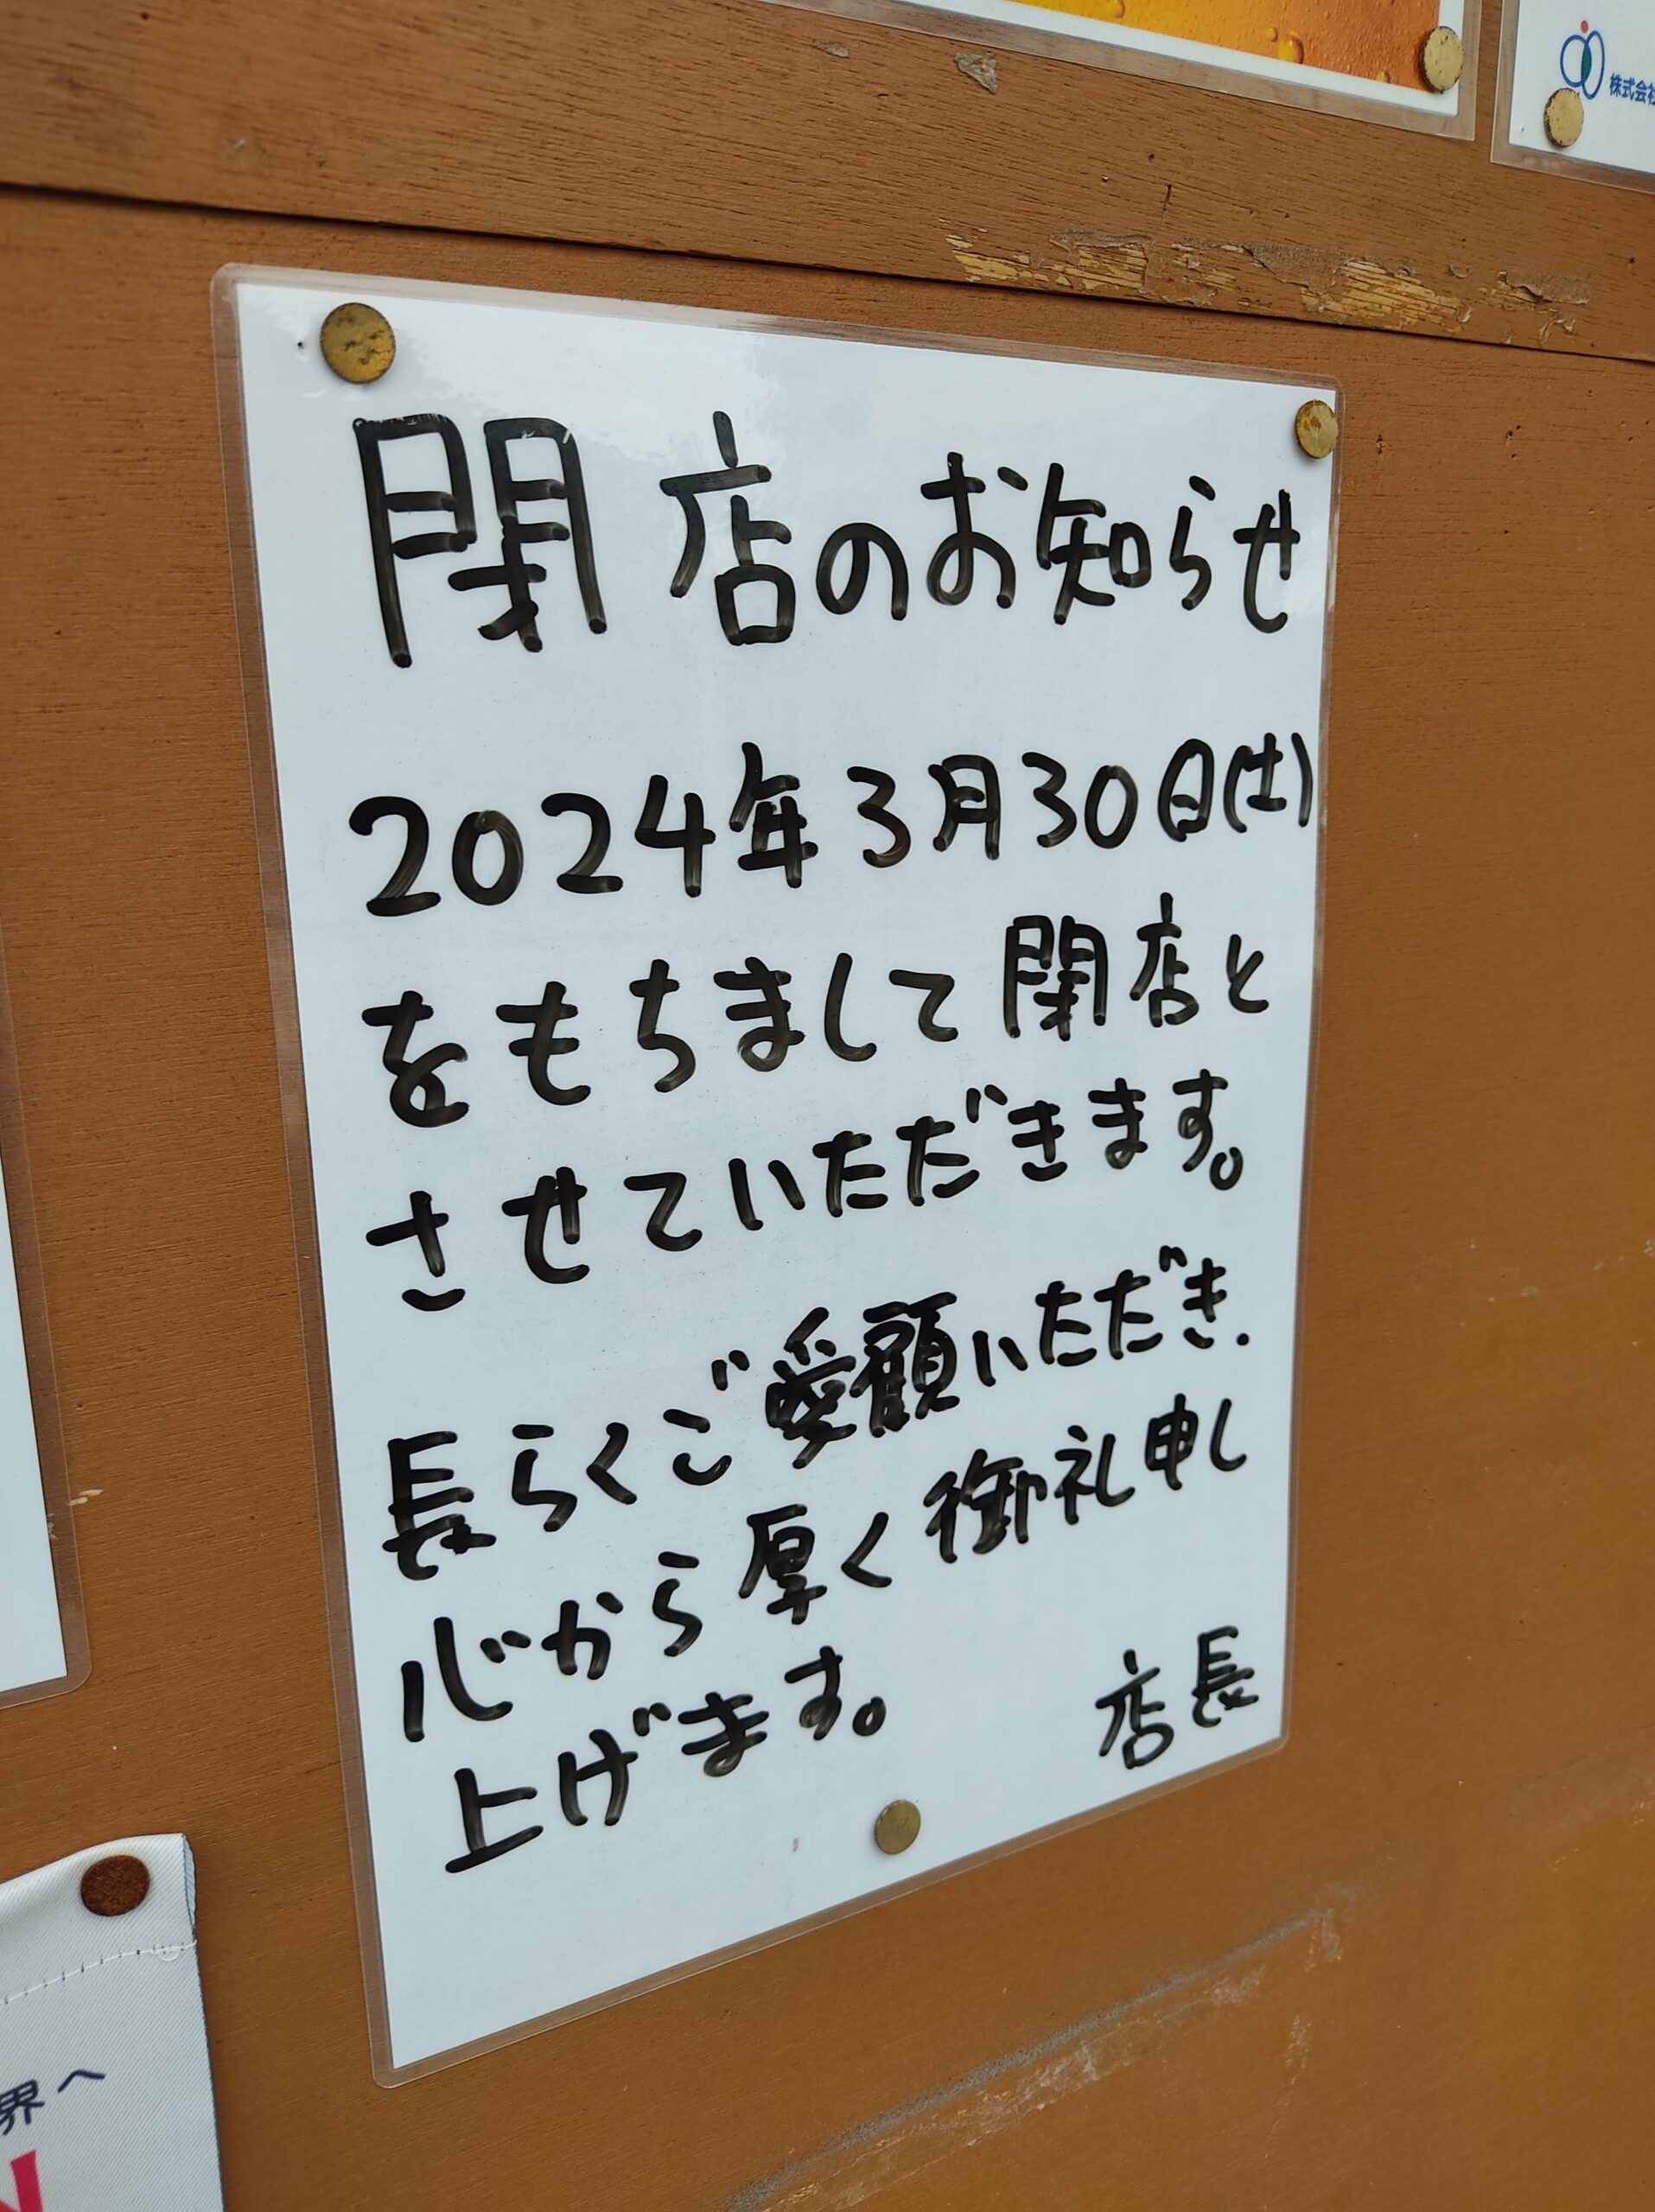 株式会社
閉店のお知らせ
2024年3月30日(土)
をもちまして閉店と
させていただきます。
長らくご愛顧いただき.
心から厚く御礼申し
上げます。
店長
界へ